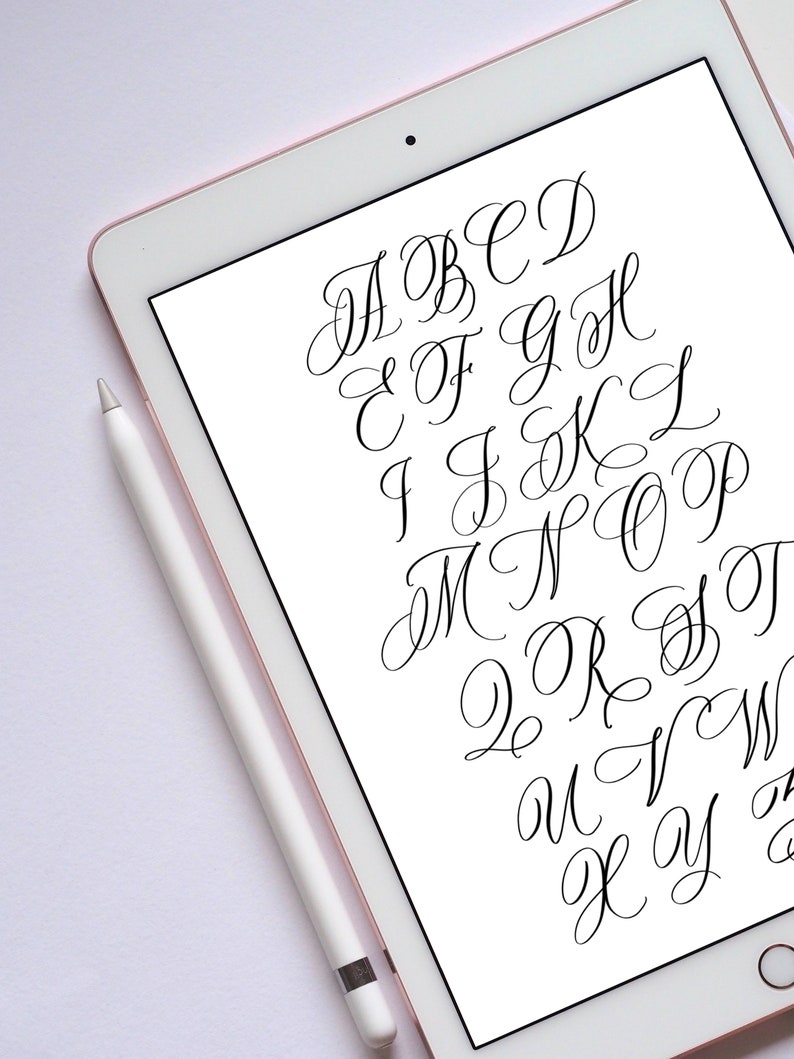 A B C D
E F G H
I J K L
M N O P
Q R S T
U V W
X Y